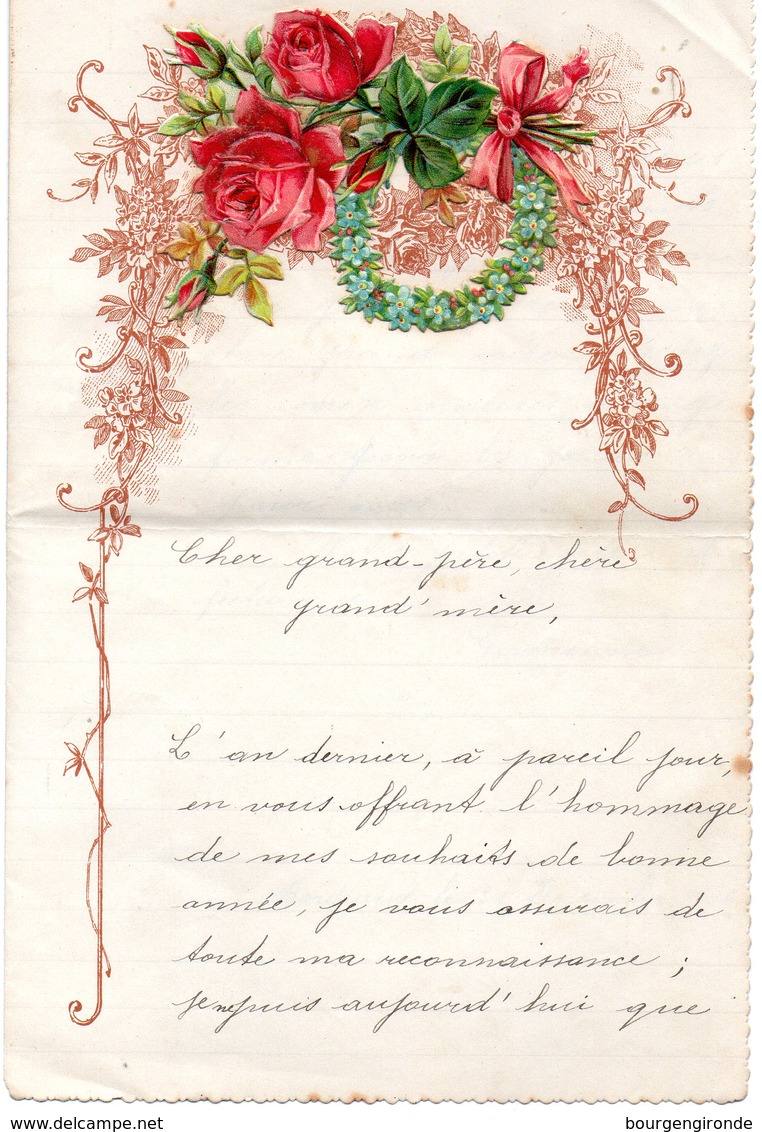 Cher grand-père, chère
grand' mère,
L'an dernier, à pareil jour,
en vous offrant l'hommage
de mes souhaits de bonne
année, je vous assurais de
toute ma reconnaissance ;
je ne puis aujourd'hui que
www.delcampe.net
bourgengironde